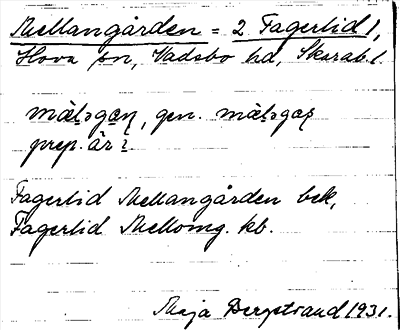 Mellangården = 2 Fagerlid 1,
Hova sn, Vadsbo hd, Skarab. l.
mä̀ḷəga̱ṇ, gen. mä̀ḷəgaṣ
prep. är i
Fagerlid Mellangården bek,
Fagerlid Mellomg. kb.
Maja Bergstrand 1931.